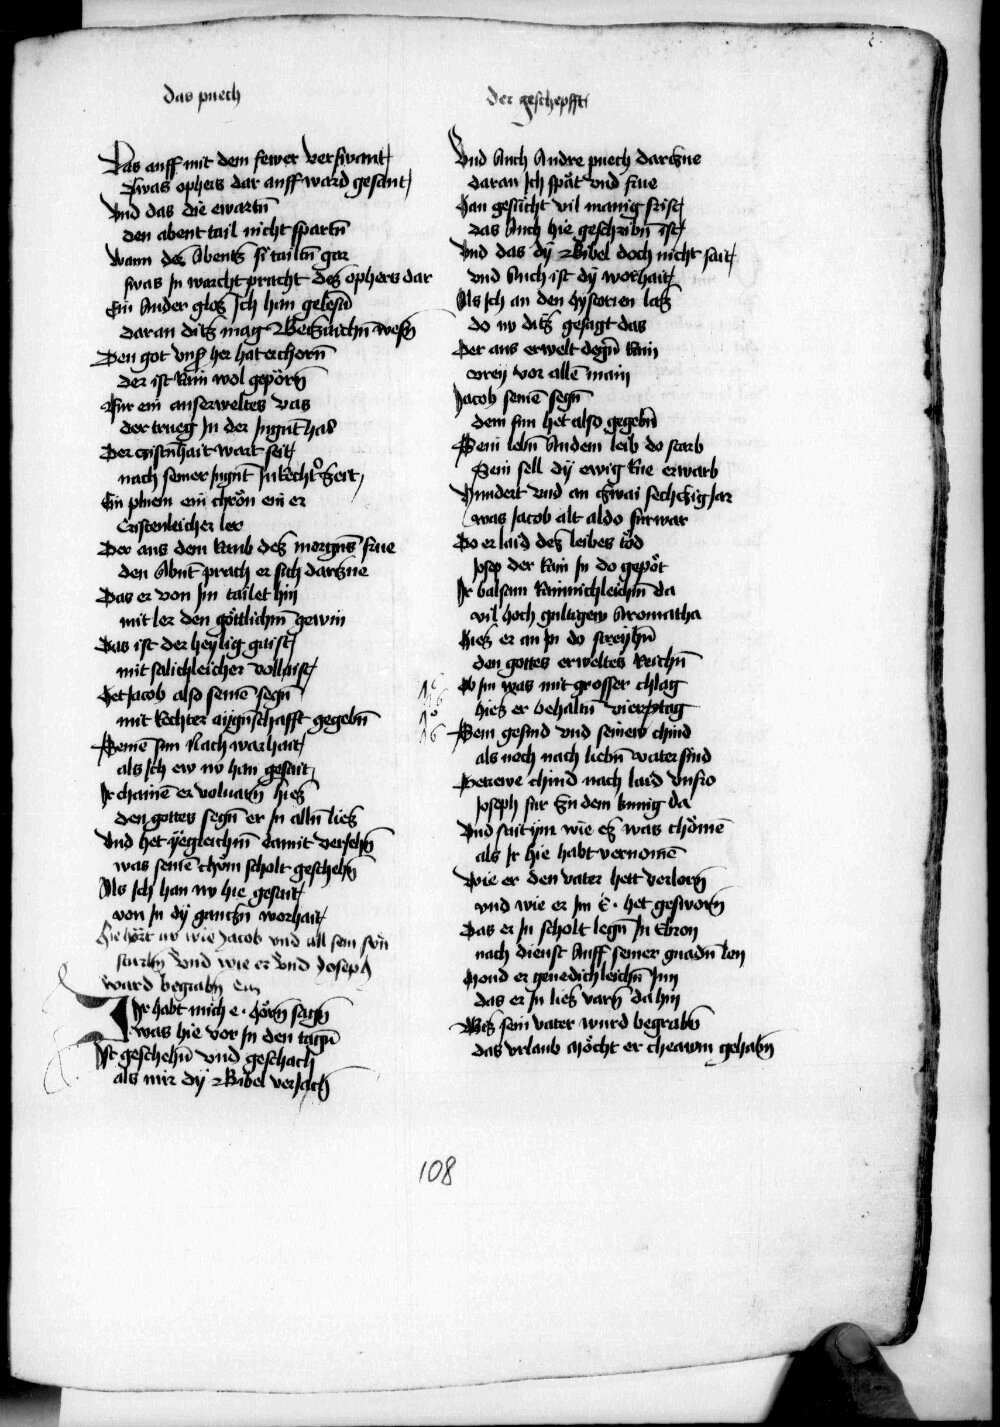 das puech
der geschepfft
Das auff mit dem fewer verswant
Swas ophers dar auff ward gesant
Vnd das die ewartn̄
den abent tail nicht spartn̄
Wann des Abents si tailtn̄ gar
swas Jn warcht pracht des ophers dar
Ein Ander glos Jch han gelesn̄
daran ditz mag Betzaichn̄ wesn̄
Den got vnser her hat erchorn̄
der ist Rain wol geporn̄
Für ein auserweltes vas
der trueg Jn der Jugnt has
Der cristnhait wart seit
nach seiner Jugnt Jn Rechter zeit
Ein pluem ein chron ein er
Cristenleicher ler
Der aus dem Raub des morgens frue
den Abnt prach er sich dartzue
Das er von Jm tailet hin
mit ler den göttlichn̄ gewin
Das ist der heylig gaist
mit salichleicher vollaist
Het Jacob also seinē segn̄
mit Rechter aygnschafft gegebn̄
Seinē sun Nach warhait
als Jch ew nv han gesait
Jr chainē er voluarn̄ hies
den gottes segn̄ er Jn alln̄ lies
Vnd het yegleichm̄ damit versehn̄
was seinē chom̄ scholt geschehn̄
Als Jch han nv hie gesait
von Jn dy gantzn̄ worhait
Hie hört nv wie Jacob vnd all sein sön
sturbn̄ Vnd wie er Vnd Joseph
ward begrabn̄
Jr habt mich e · hörn̄ sagn̄
was hie vor Jn den tagn̄
Jst geschehn̄ vnd geschach
als mir dy Bibel versach
Vnd Auch Andre puech dartzue
daran Jch spat vnd frue
Han gesucht vil manig frist
das Auch hie geschribn̄ ist
Vnd das dy Bibel doch nicht sait
vnd Auch ist dy worhait
Als Jch an den hystorien las
do nv ditz gesagt das
Der aus erwelt degn̄ Rain
vrey vor allē main
Jacob seinē segn̄
dem sun het also gegebn̄
Sein lebn̄ Andem leib do starb
Sein sell dy ewig Rue erwarb
Hundert vnd an zwai sechczig Jar
was Jacob alt aldo fürwar
Do er laid des leibes tod
Josep der Rain Jn do gepot
Jr balsam Rainnichleichn̄ da
vil hoch gultigew Aromatha
Hies er an Jn do streychn̄
den gottes erweltes Reichn̄
Ob Jm was mit grosser chlag
hies er behaltn̄ viertzptag
Sein gesind vnd seinew chind
als noch nach liebn̄ vater sind
Getrewe chind nach laid vnfro
Joseph fur zu dem kunig da
Vnd sait ym wie es was chömē
als Jr hie habt vernomē
Wie er den vater hett verlorn̄
vnd wie er Jm E · het gesworn̄
Das er Jn scholt legn̄ Jn Ebron
nach dienst Auff seiner gnadn̄ lon
Vond er genedichleichn̄ Jnn
das er Jn lies varn̄ dahin
Bis sein vater wurd begrabn̄
das vrlaub möcht er chawm gehabn̄
108